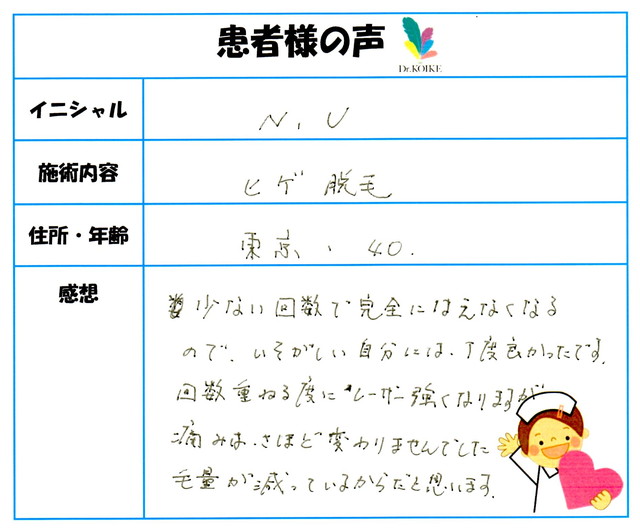 患者様の声
Dr.KOIKE
イニシャル
N.U
施術内容
ヒゲ 脱毛
住所・年齢
東京、40.
感想
少ない回数で完全にはえなくなる
ので、いそがしい自分には、丁度良かったです。
回数重ねる度に レーザー強くなりますが
痛みは、さほど変わりませんでした
毛量が減っているからだと思います。